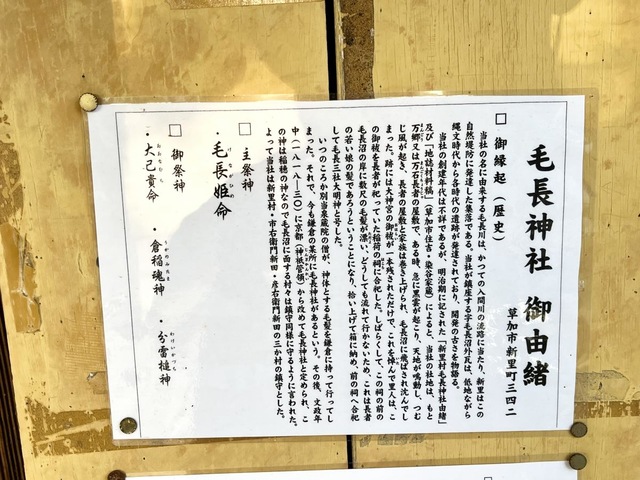 毛長神社 御由緒
草加市新里町三四二
□ 御縁起（歴史）
当社の名に由来する毛長川は、かつての入間川の流路に当たり、新里はこの
自然堤防に発達した集落である。当社が鎮座する字毛長沼外瓦は、低地ながら
縄文時代から各時代の遺跡が発達されており、開発の古さを物語る。
当社の創建年代は不詳であるが、明治期に記された「新里村毛長神社由緒」
及び「地誌材料稿」（草加市住吉・染谷家蔵）によると、当社の社地は、もと
万郷又は万石長者の屋敷で、ある時、急に黒雲が起こり、天地が鳴動し、つむ
じ風が起き、長者の屋敷と家族は巻き上げられ、毛長沼に飛ばされ沈んでし
まった。跡には大神宮の御祓が一本残されただけで、これを悼んで里人は、こ
の御祓を長者が祀っていた稲荷の祠に合祀した。しばらくして、この祠の前の
毛長沼の岸に数尺の毛髪が漂い、どうしても流れて行かないため、これは長者
の若い娘の髪であろうということになり、拾い上げて箱に納め、前の祠へ合祀
して毛長三社大明神と号した。
いつのころか別当泉蔵院の僧が、神体とする毛髪を鎌倉に持って行ってし
まった。それで、今も鎌倉の某所に毛長神社があるという。その後、文政年
中（一八一八―三〇）に京都（神祇管領）から改めて毛長神社と定められ、こ
の神は稲穂の神なので毛長沼に面する村々は鎮守同様に守るように言われた。
よって当社は新里村・市右衛門新田・彦右衛門新田の三か村の鎮守とした。
□ 主祭神
・毛長姫命
けながひめ
□ 御祭神
・大己貴命 ・倉稲魂神 ・分雷槌神
おおなむち うかのみたま わけいかづち